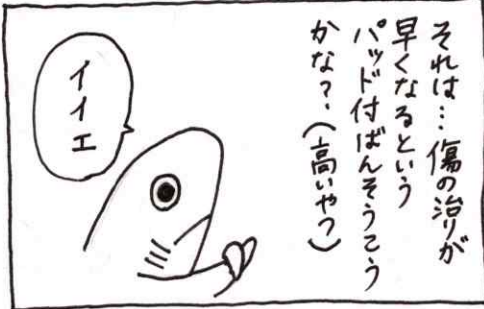 それは…傷の治りが
早くなるという
パッド付ばんそうこう
かな?(高いやつ)
イイエ